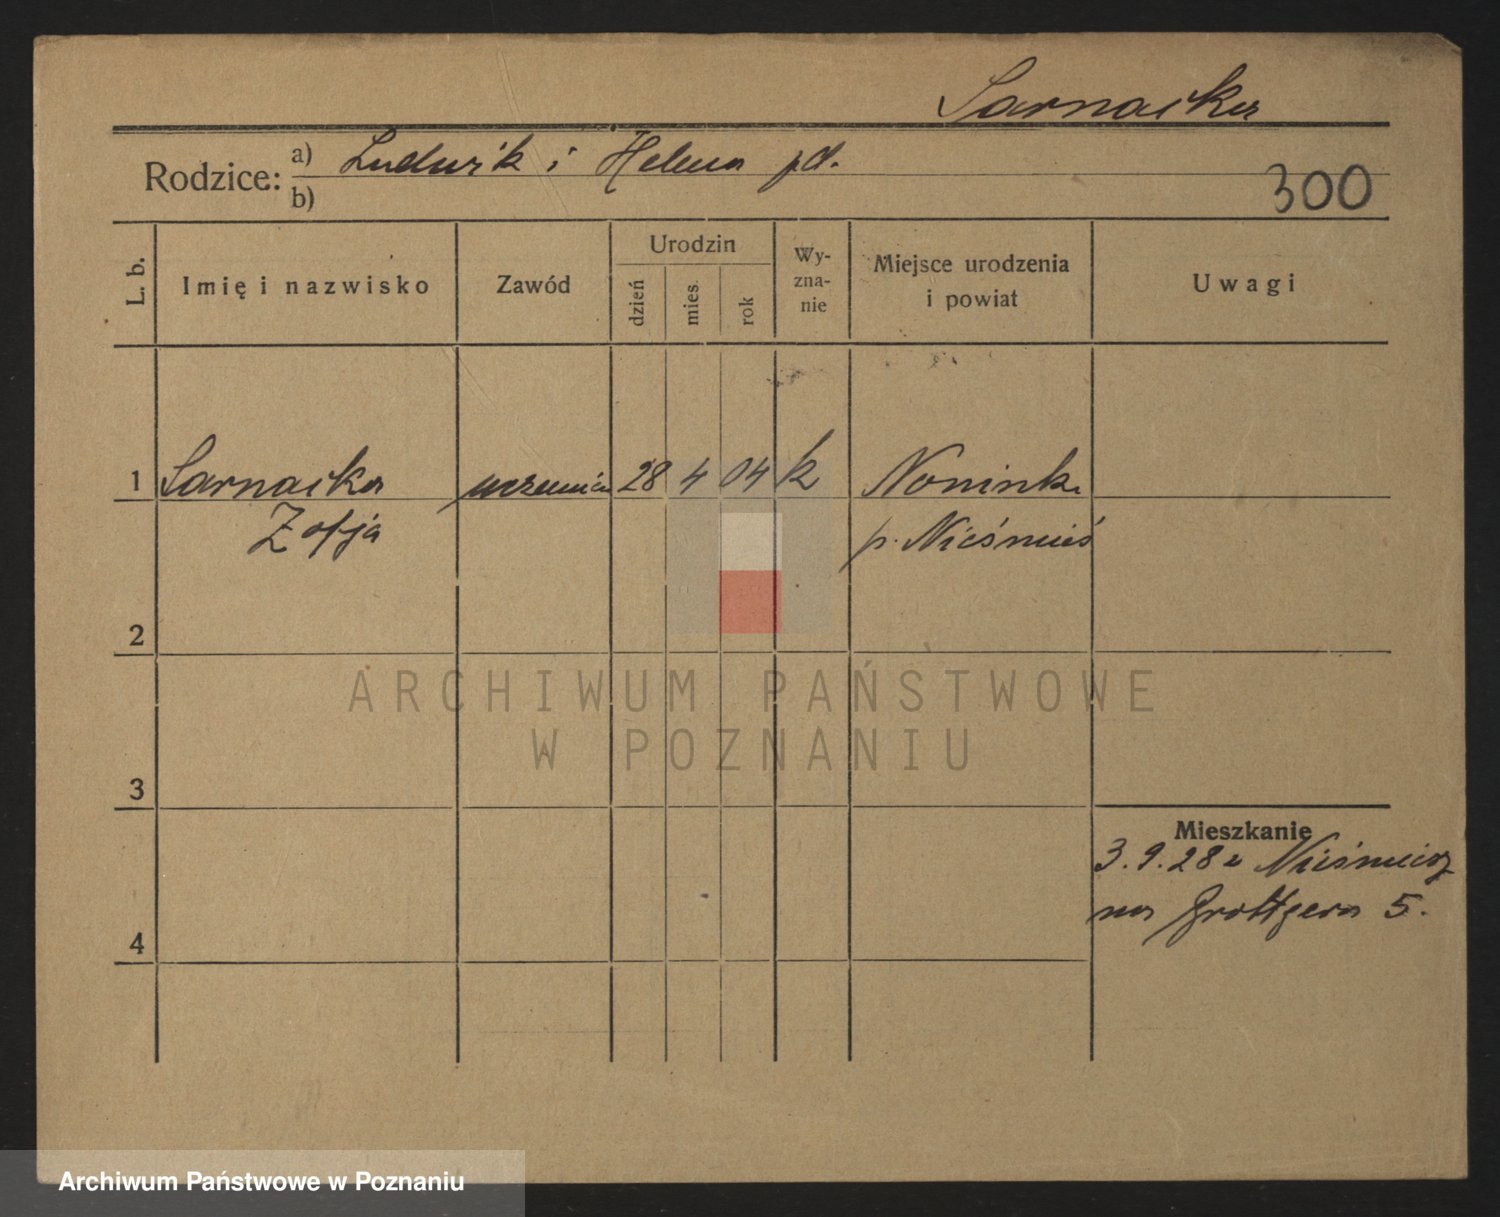 Sarnacka
Rodzice: a) Ludwik i Helena pd.
b)
300
L. b.
Imię i nazwisko
Zawód
Urodzin
dzień
mies.
rok
Wy-
zna-
nie
Miejsce urodzenia
i powiat
Uwagi
1 Sarnacka uczenica 28 4 04 k Noninki
Zofja p. Nieśwież
2
3
4
Mieszkanie
3.9.28 z Nieświeża
na Grottgera 5.
ARCHIWUM PAŃSTWOWE
W POZNANIU
Archiwum Państwowe w Poznaniu